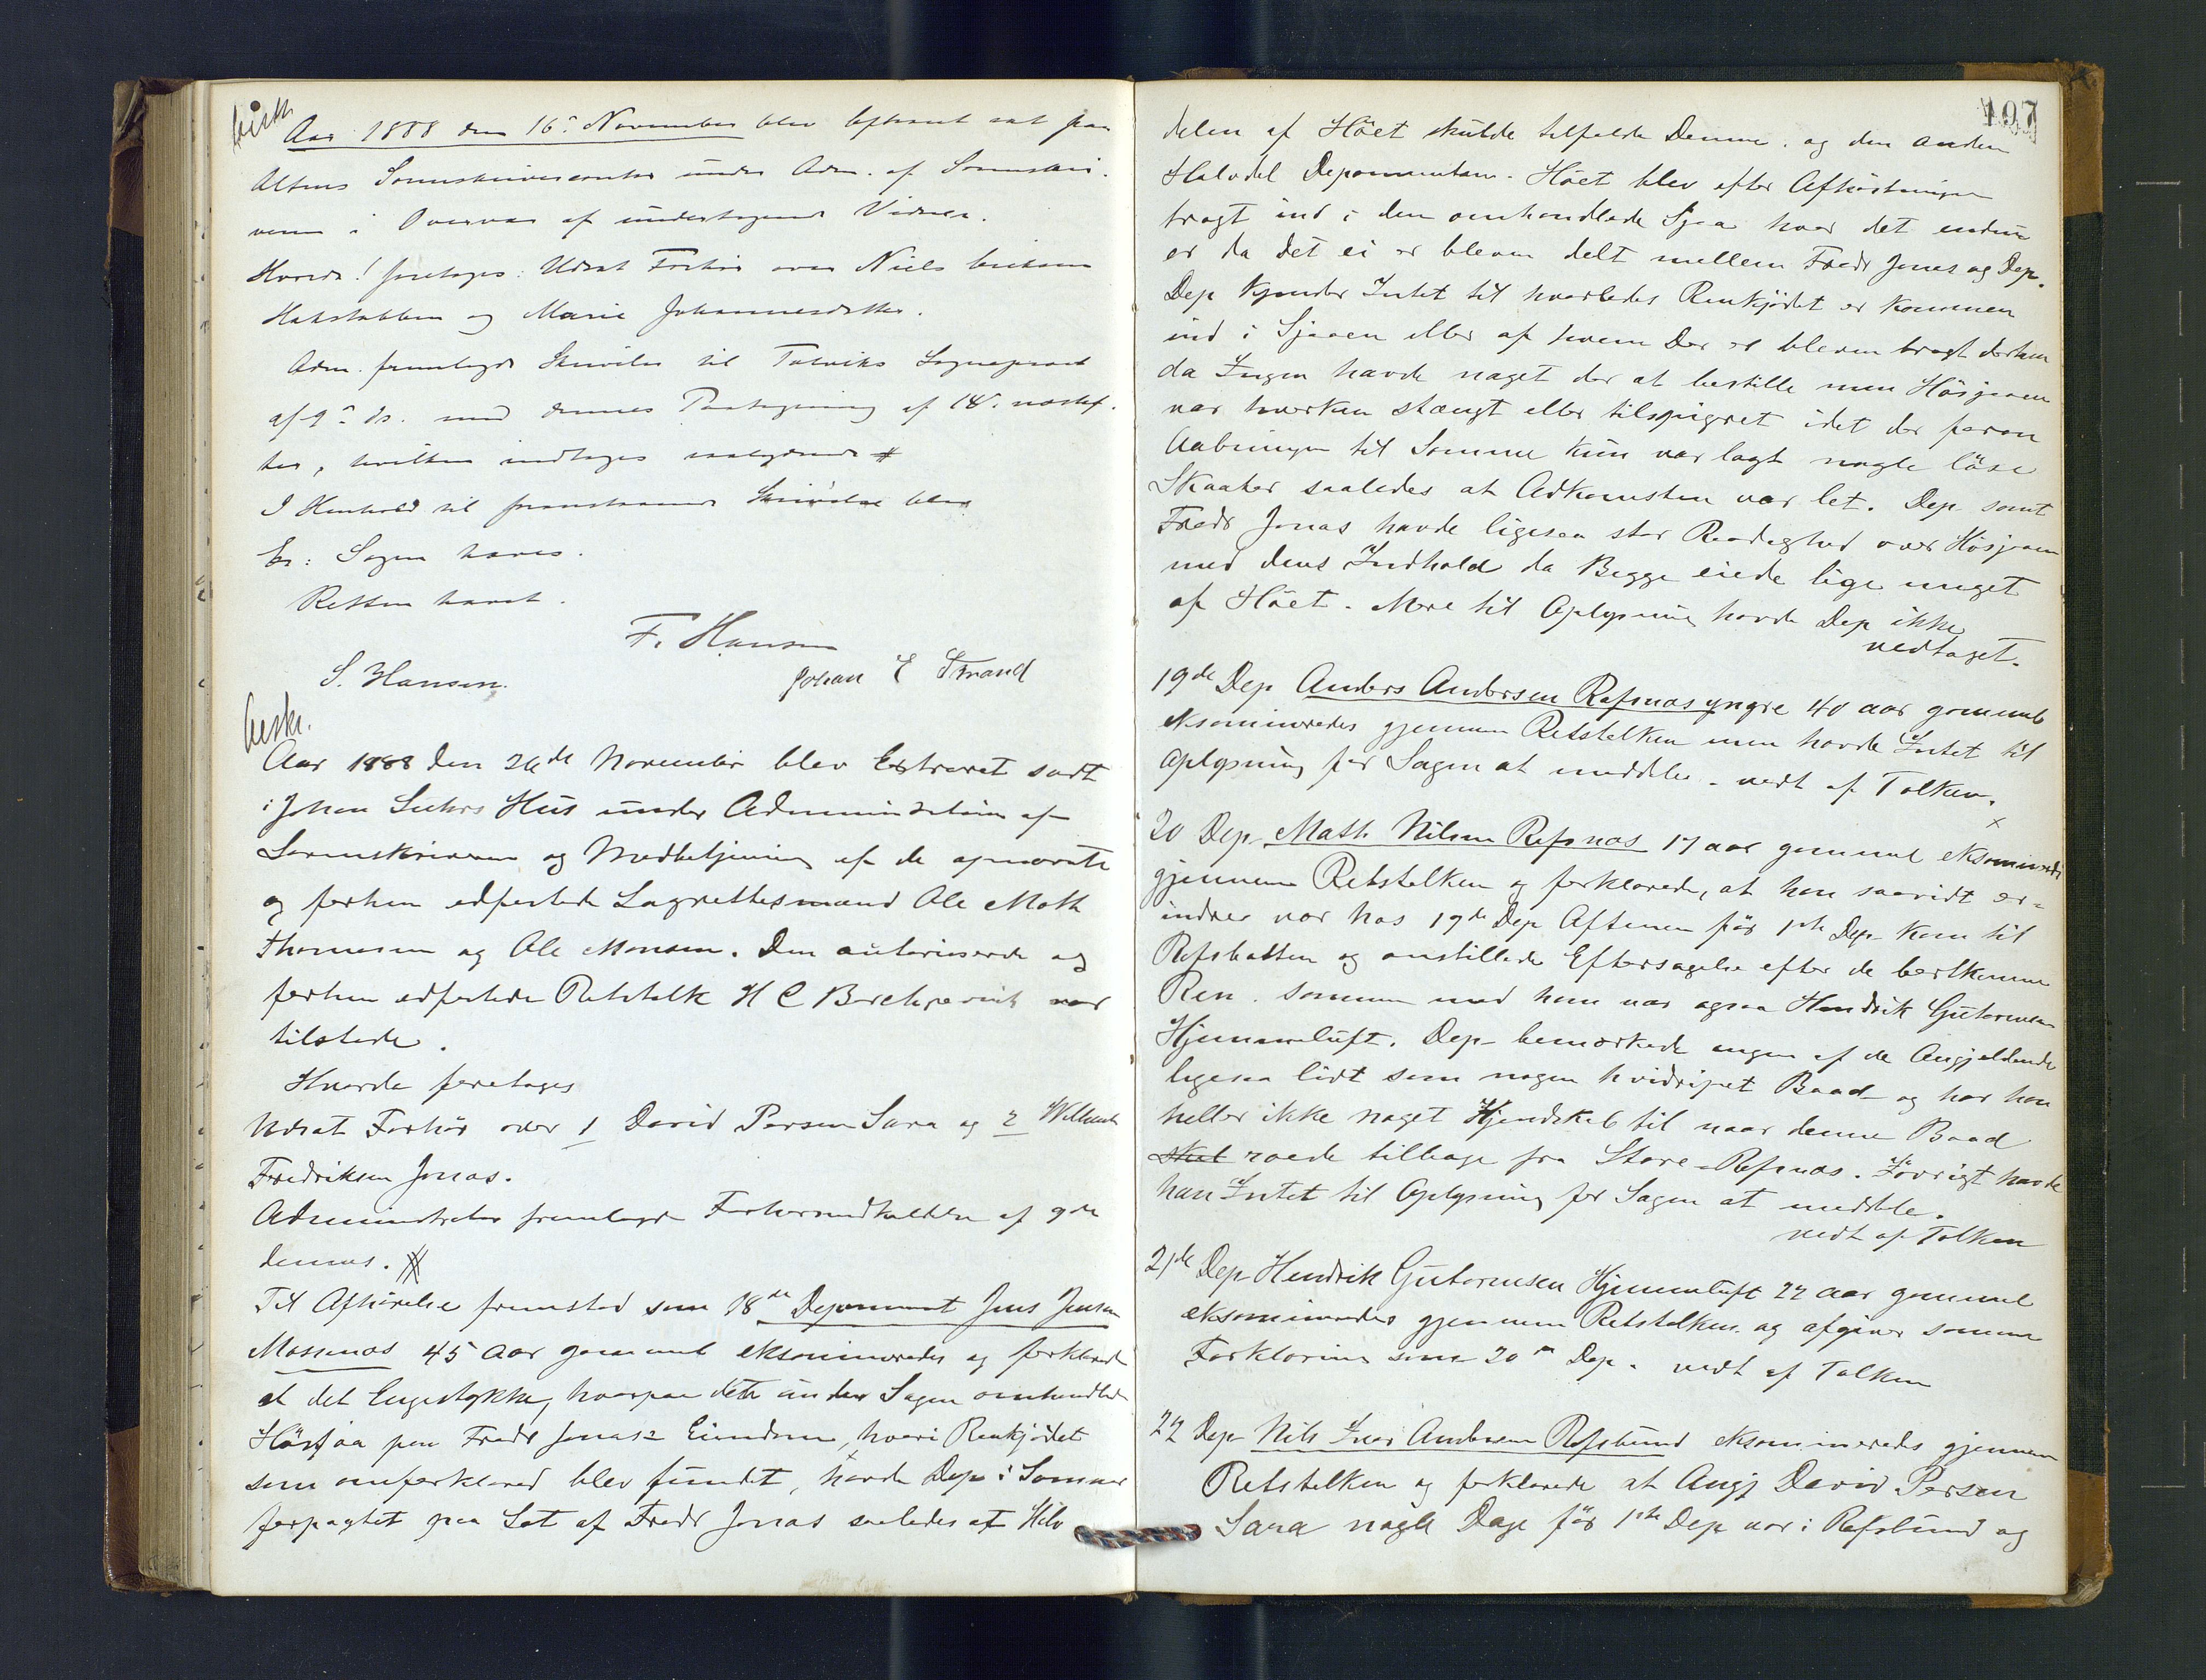 beskr.
Aar 1888 den 16de November blev Extraret sat paa
Altens Sorenskrivercontor under Adm. af Sorenskri-
veren i Overvær af undertegnede Vidner.
Hvorda! foretoges: Udsat Forhør over Niels
og Marie Johannesdatter.
Adm. fremlagde Skrivelse til Talviks Sogneprest
af 9de ds. med dennes Paategning af 14. næstef-
ter, hvilken indtages saalydende #
I Henhold til foranstaaende Skrivelse blev
Er: Sagen hæves.
Retten hævet.
F. Hansen
S. Hansen.
Johan E Strand
beskr.
Aar 1888 den 26de November blev Extraret sadt
i Johan Suhrs Hus under Administration af
Sorenskriveren og Medbetjening af de opnævnte
og forhen edfæstede Lagrettesmænd Ole Math
Thomesen og Ole Monsen. Den autoriserede og
forhen edfæstede Retstolk H C var
tilstede.
Hvorda foretages
Udsat Forhør over 1 David Persen Sara og 2
Fredriksen Jonas.
Administrator fremlagde af 9de
dennes. #
Til Afhørelse fremstod som 18de Deponent Jens Jensen
Mossenæs 45 Aar gammel eksamineredes og forklarede
at det Engestykke, hvorpaa det under Sagen omhandlede
Høsjaa paa Fredr Jonas's Eiendom, hvori Renkjødet
som omforklared blev fundet, havde Dep i Sommer
forpagtet paa Lot af Fredr Jonas saaledes at Halv
197
delen af Høet skulde tilfalde Denne og den anden
Halvdel Deponenten. Høet blev efter Afhøstningen
bragt ind i den omhandlede Sjaa hvor det endnu
er da det ei er bleven delt mellem Fredr Jonas og Dep.
Dep kjender Intet til hvorledes Renkjødet er kommen
ind i Sjaaen eller af hvem Der er bleven bragt derhen
da Ingen havde noget der at bestille men Høsjaaen
var hverken stængt eller tilspigret idet der foran
Aabningen til Samme kun var lagt nogle løse
Skaaker saaledes at Adkomsten var let. Dep samt
Fredr Jonas havde ligesaa stor Raadighed over Høsjaaen
med dens Indhold da Begge eiede lige meget
af Høet. Mere til Oplysning havde Dep ikke
vedtaget.
19de Dep Anders Andersen Rafsnæs yngre 40 aar gammel
eksamineredes gjennem Retstolken men havde Intet til
Oplysning for Sagen at meddele. vedt af Tolken.
20 Dep Math Nilsen Refsnæs 17 aar gammel eksamineredes
gjennem Retstolken og forklarede, at han saavidt er-
indrer var hos 19de Dep Aftenen før 1ste Dep kom til
Refsbotten og anstillede Eftersøgelse efter de bortkomne
Ren. Sammen med ham var ogsaa Hendrik Gutormsen
Hjemmeluft. Dep bemærkede ingen af de Angjældende
ligesaa lidt som nogen hvidripet Baad og har han
heller ikke noget Kjendskab til naar denne Baad
skul roede tilbage fra Store-Refsnæs. Iøvrigt havde
han Intet til Oplysning for Sagen at meddele.
vedt af Tolken
21de Dep Hendrik Gutormsen Hjemmeluft 22 aar gammel
eksamineredes gjennem Retstolken og afgiver samme
Forklaring som 20de Dep. vedt af Tolken
22 Dep Nils Iver Andersen Refsbund eksamineredes gjennem
Retstolken og forklarede at Angj David Persen
Sara nogle Dage før 1ste Dep var i Refsbund og